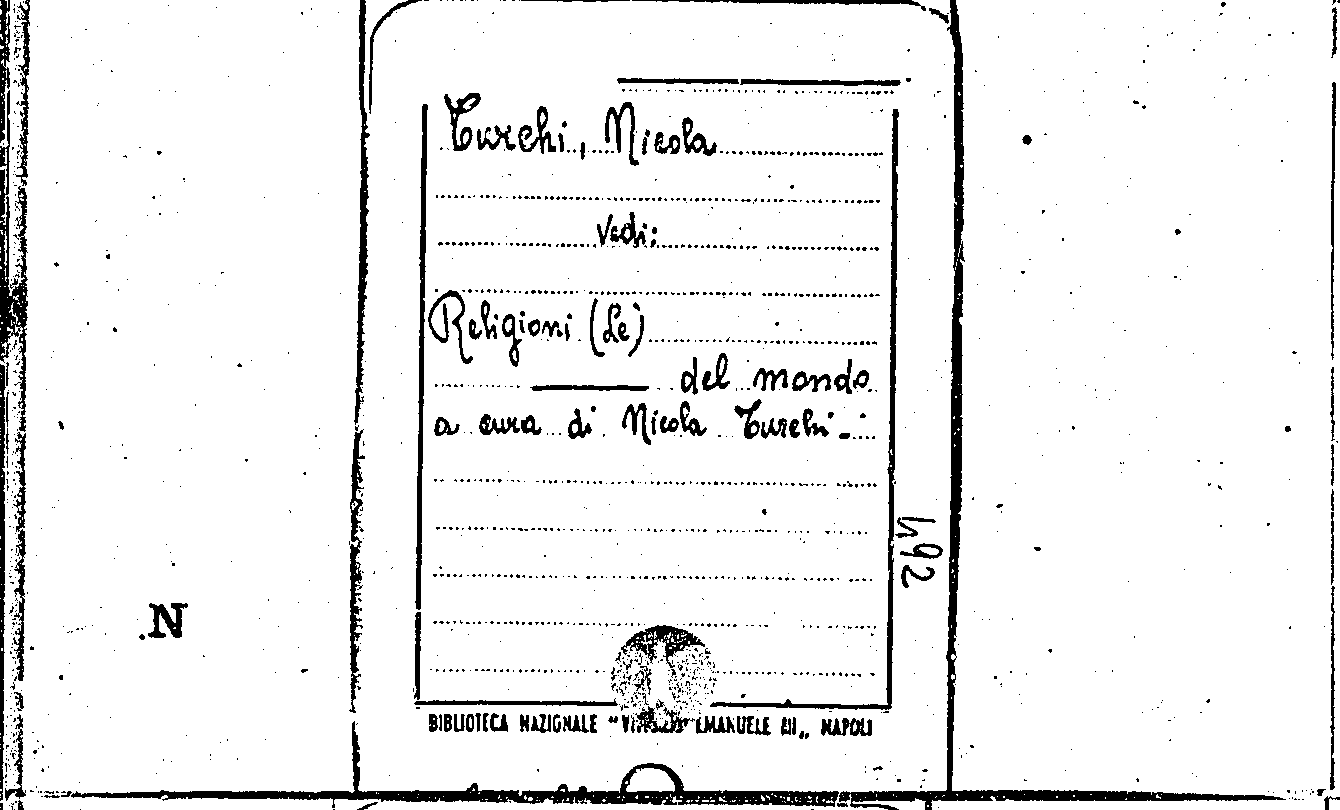 Turchi, Nicola
Vedi:
Religioni (Le)
——— del mondo
a cura di Nicola Turchi -
492
N
BIBLIOTECA NAZIONALE "VITTORIO EMANUELE III„ NAPOLI